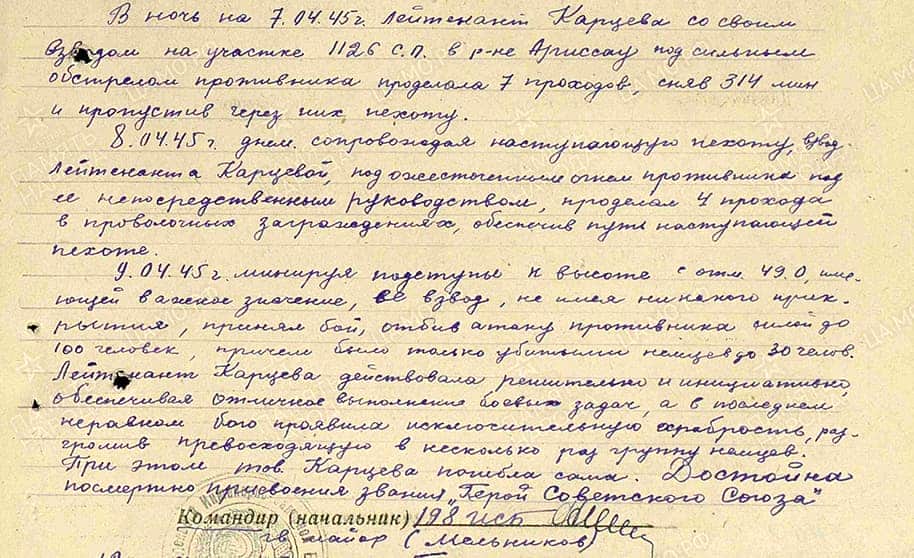 В ночь на 7.04.45г. лейтенант Карцева со своим
взводом на участке 1126 с.п. в р-не Ариссау под сильным
обстрелом противника проделала 7 проходов, сняв 314 мин
и пропустив через них пехоту.
8.04.45г. днем. сопровождая наступающую пехоту, взвод
лейтенанта Карцевой, под ожесточенным огнем противника под
ее непосредственным руководством, проделал 4 прохода
в проволочных заграждениях, обеспечив путь наступающей
пехоте.
9.04.45г. минируя подступы к высоте с отм. 49.0, име-
ющей важное значение, ее взвод, не имея никакого прик-
рытия, принял бой, отбив атаку противника силой до
100 человек, причем было только убитыми немцев до 30 челов.
Лейтенант Карцева действовала решительно и инициативно,
обеспечивая отличное выполнение боевых задач, а в последнем
неравном бою проявила исключительную храбрость, раз-
громив превосходящую в несколько раз группу немцев.
При этом тов. Карцева погибла сама. Достойна
посмертно присвоения звания "Герой Советского Союза"
Командир (начальник) 198 исб
гв. майор (Мельников)